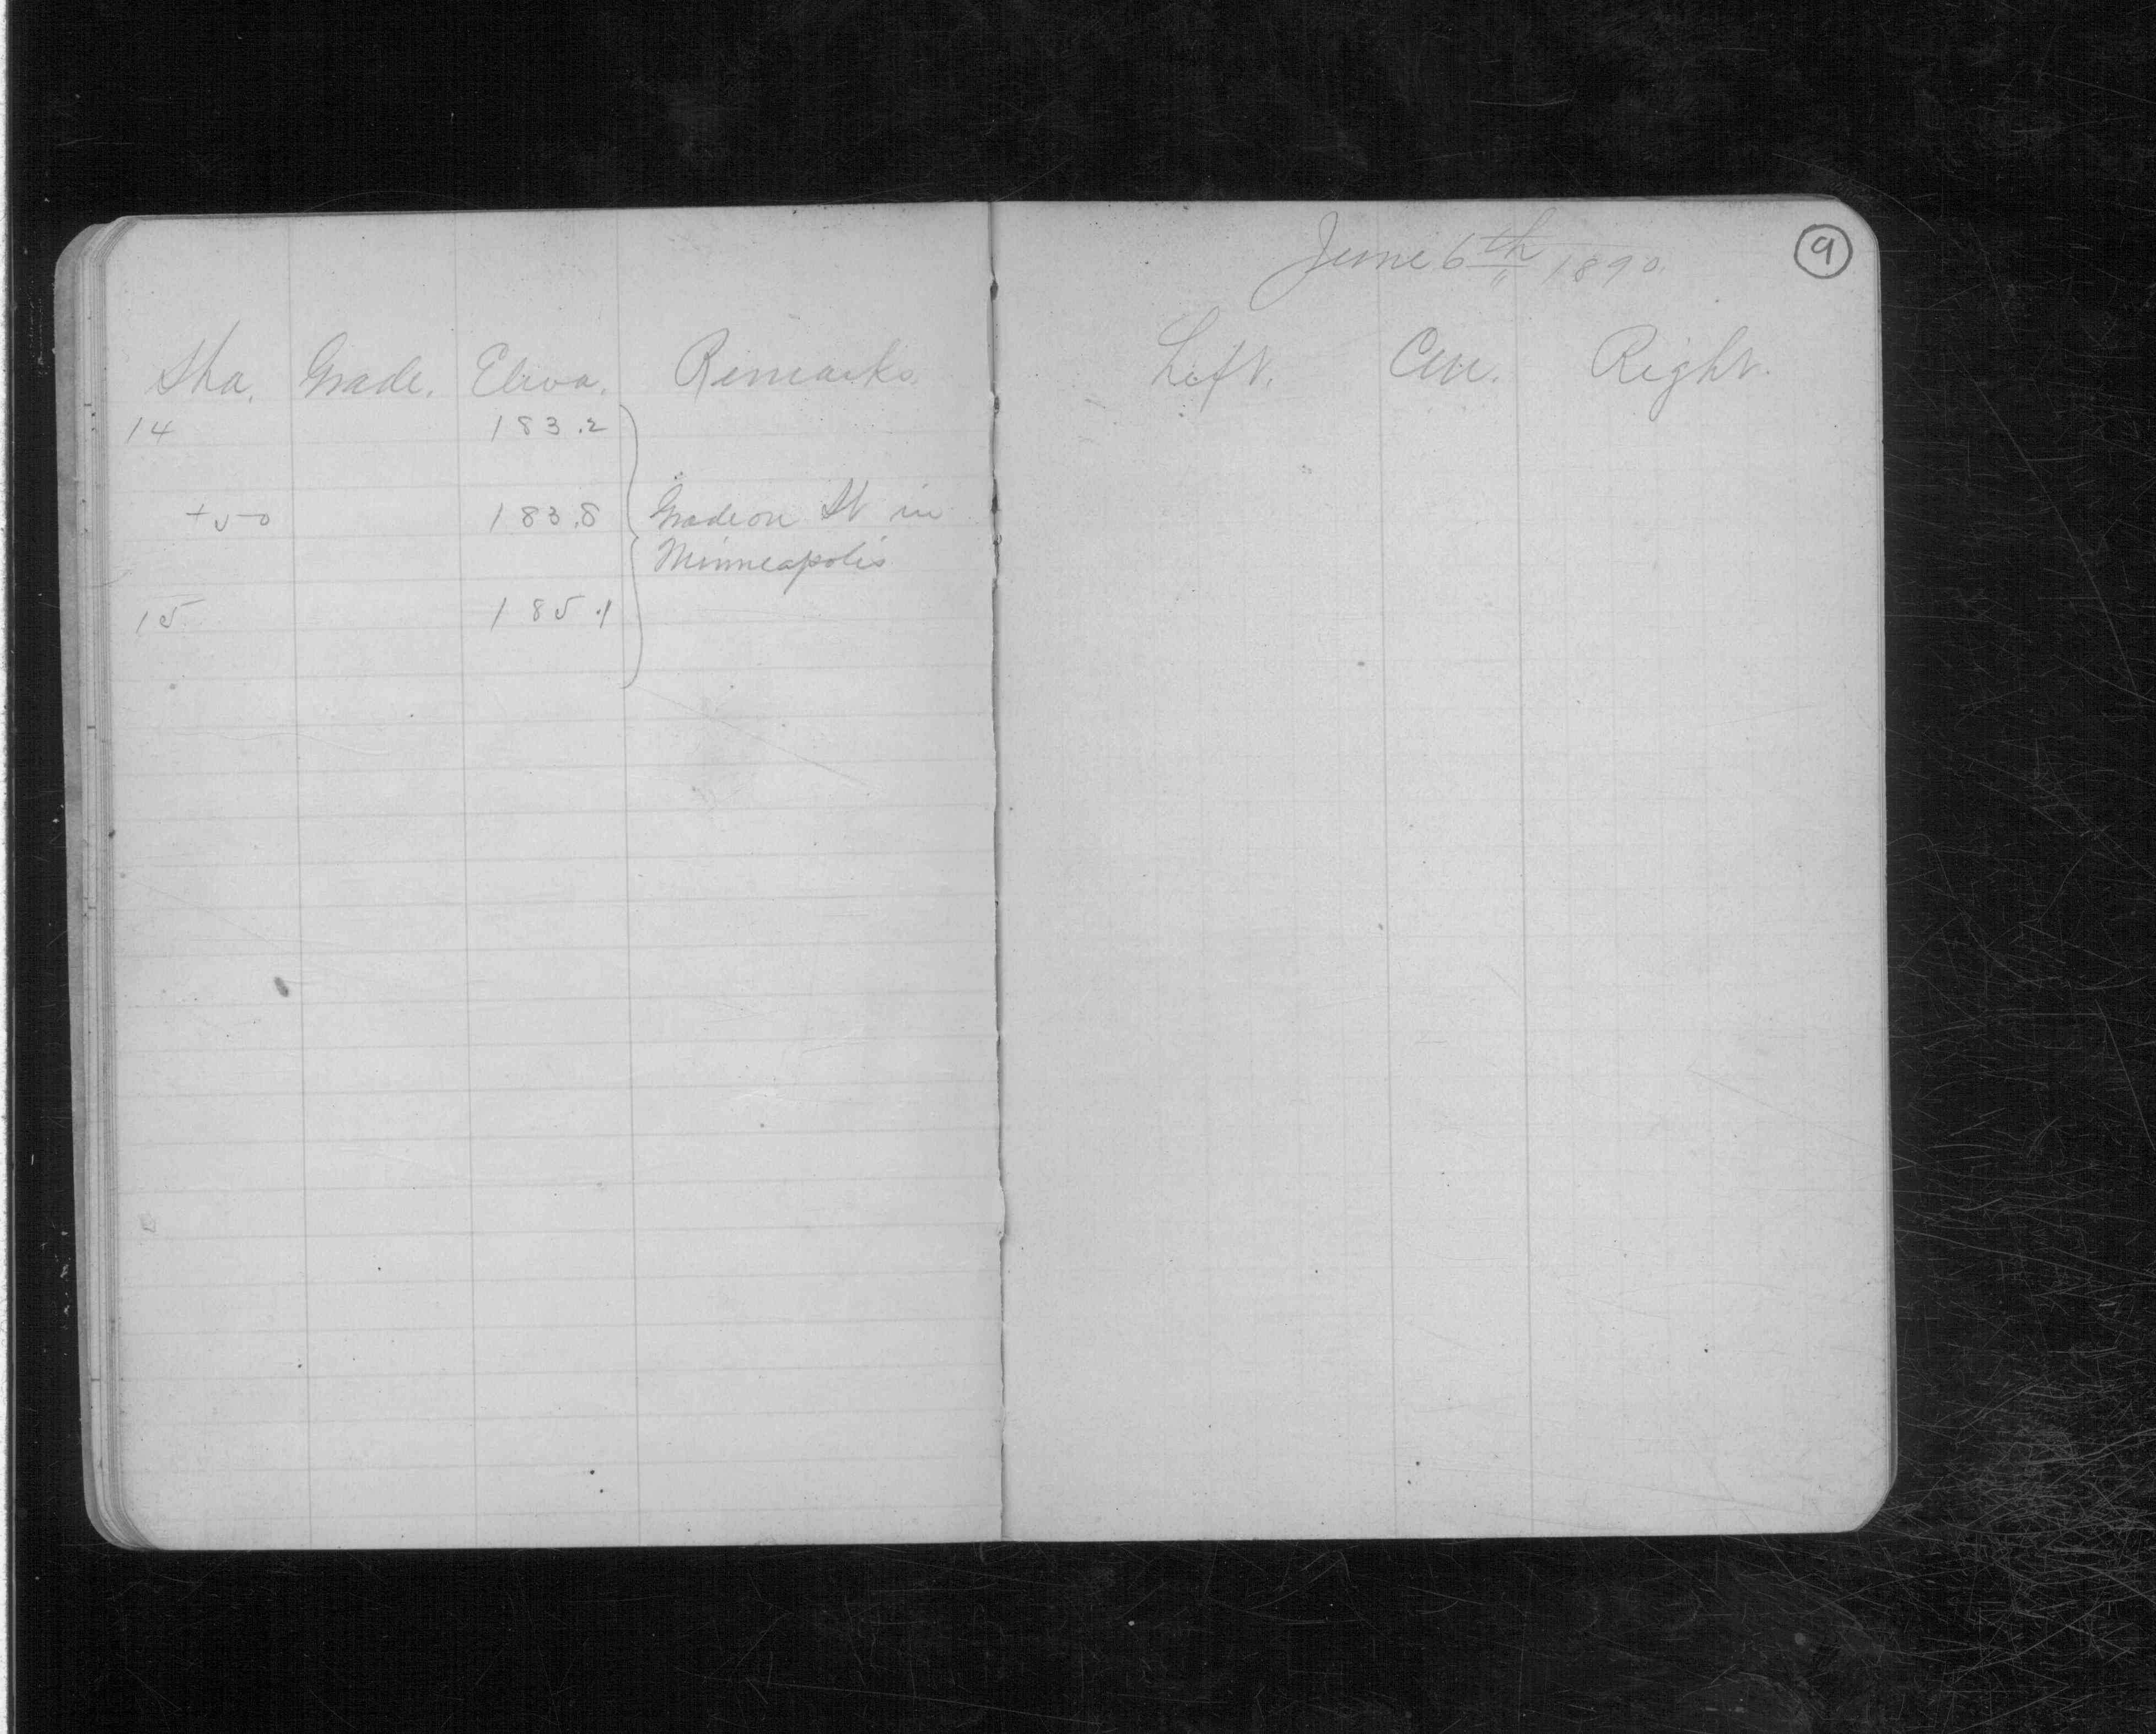 Sta. Grade. Eleva. Remarks.
14 183.2
+50 183.8 Grade on St in
Minneapolis
15 185.1
June 6th 1890.
9
Left. Cen. Right.